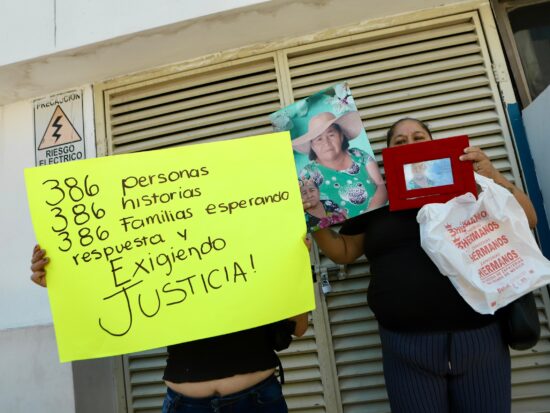 PRECAUCIÓN
RIESGO
ELÉCTRICO
386 personas
386 historias
386 Familias esperando
respuesta y
Exigiendo
JUSTICIA!
3HERMANOS
HERMANOS